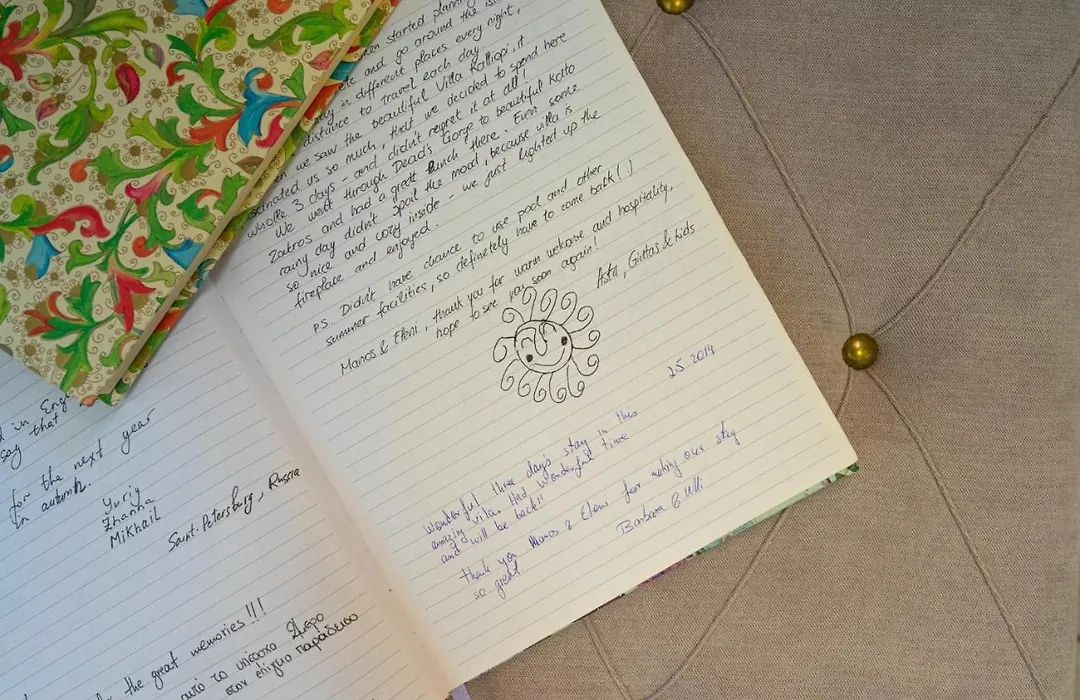 started planning
and go around the
in different places every night,
distance to travel each day.
we saw the beautiful Villa Kalliopi, it
us so much, that we decided to spend here
whole 3 days - and didn't regret it at all!
We went through Dead's Gorge to beautiful Kato
Zakros and had a great lunch there. Even some
rainy day didn't spoil the mood, because villa is
so nice and cozy inside - we just lighted up the
fireplace and enjoyed.
P.S. Didn't have chance to use pool and other
summer facilities, so definetely have to come back (:)
Manos & Eleni, thank you for warm welcome and hospitality,
hope to see you soon again!
& kids
2.5.2014
Wonderful three days stay in this
amazing villa. Had wonderful time
and will be back!!
Thank you Manos & Eleni for making our stay
so great
Barbara & Ulli
in
say that
for the next year
in autumn.
Yuriy
Zhanna
Mikhail
Saint-Petersburg, Russia
the great memories!!!
αυτό το υπέροχο
στον επίγειο παράδεισο